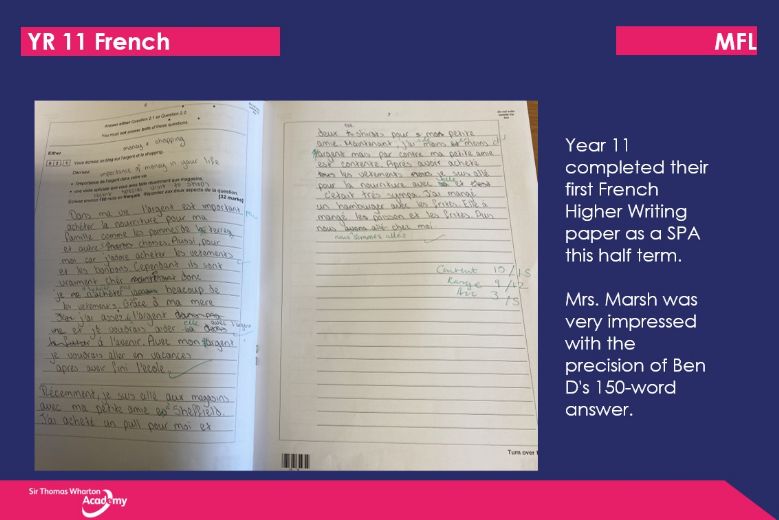 YR 11 French
MFL
Answer either Question 2.1 or Question 2.2
You must not answer both of these questions.
Either
money & shopping
0 2 . 1 Vous écrivez un blog sur l'argent et le shopping.
Décrivez
importance of money in your life
• l'importance de l'argent dans votre vie
• une visite que vous avez faite récemment aux magasins.
recent visit to shops
Écrivez environ 150 mots en français. Répondez aux deux aspects de la question.
[32 marks]
Dans ma vie l'argent est important
acheter la nourriture pour ma
famille comme les pommes de terres
et autres choses. Aussi, pour
moi car j'adore acheter les vêtements
et les bonbons. Cependant ils sont
vraiment cher donc
je n'achèter beacoup de
les vetements. Grâce à ma mère
j'ai assez d'argent
et je voudrais aider
à l'avenir. Avec mon argent
je voudrais aller en vacances
apres avoir fini l'ecole.
Récemment, je suis allé aux magasins
avec ma petite amie Sheffield.
J'ai acheté un pull pour moi et
7
deux t-shirts pour ma petite
amie. Maintenant, j'ai moins d'
argent mais par contre ma petite amie
est contente. Après avoir acheté
les vêtements je suis allé
pour la nourriture avec elle
c'était très sympa. J'ai mangé
un hamburger avec les frites. Elle a
mangé les poisson et les frites. Puis
nous chez moi.
nous sommes allés
Content 10/15
Range 9/12
Acc 3/5
Turn over
Year 11
completed their
first French
Higher Writing
paper as a SPA
this half term.
Mrs. Marsh was
very impressed
with the
precision of Ben
D's 150-word
answer.
Sir Thomas Wharton
Academy